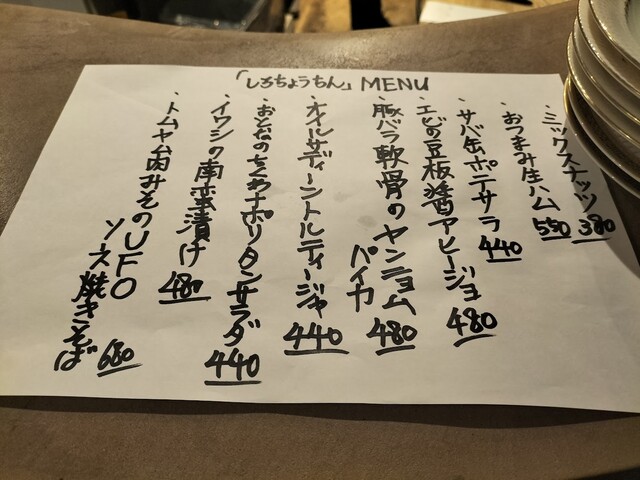 「しろちょうちん」MENU
・ミックスナッツ 380
・おつまみ生ハム 550
・サバ缶ポテサラ 440
・エビの豆板醤アヒージョ 480
・豚バラ軟骨のヤンニョム
パイカ 480
・オイルサディーントルティージャ 440
・おとなのちくわナポリタンサラダ 440
・イワシの南蛮漬け 480
・トムヤム肉みそのUFO
ソース焼きそば 680